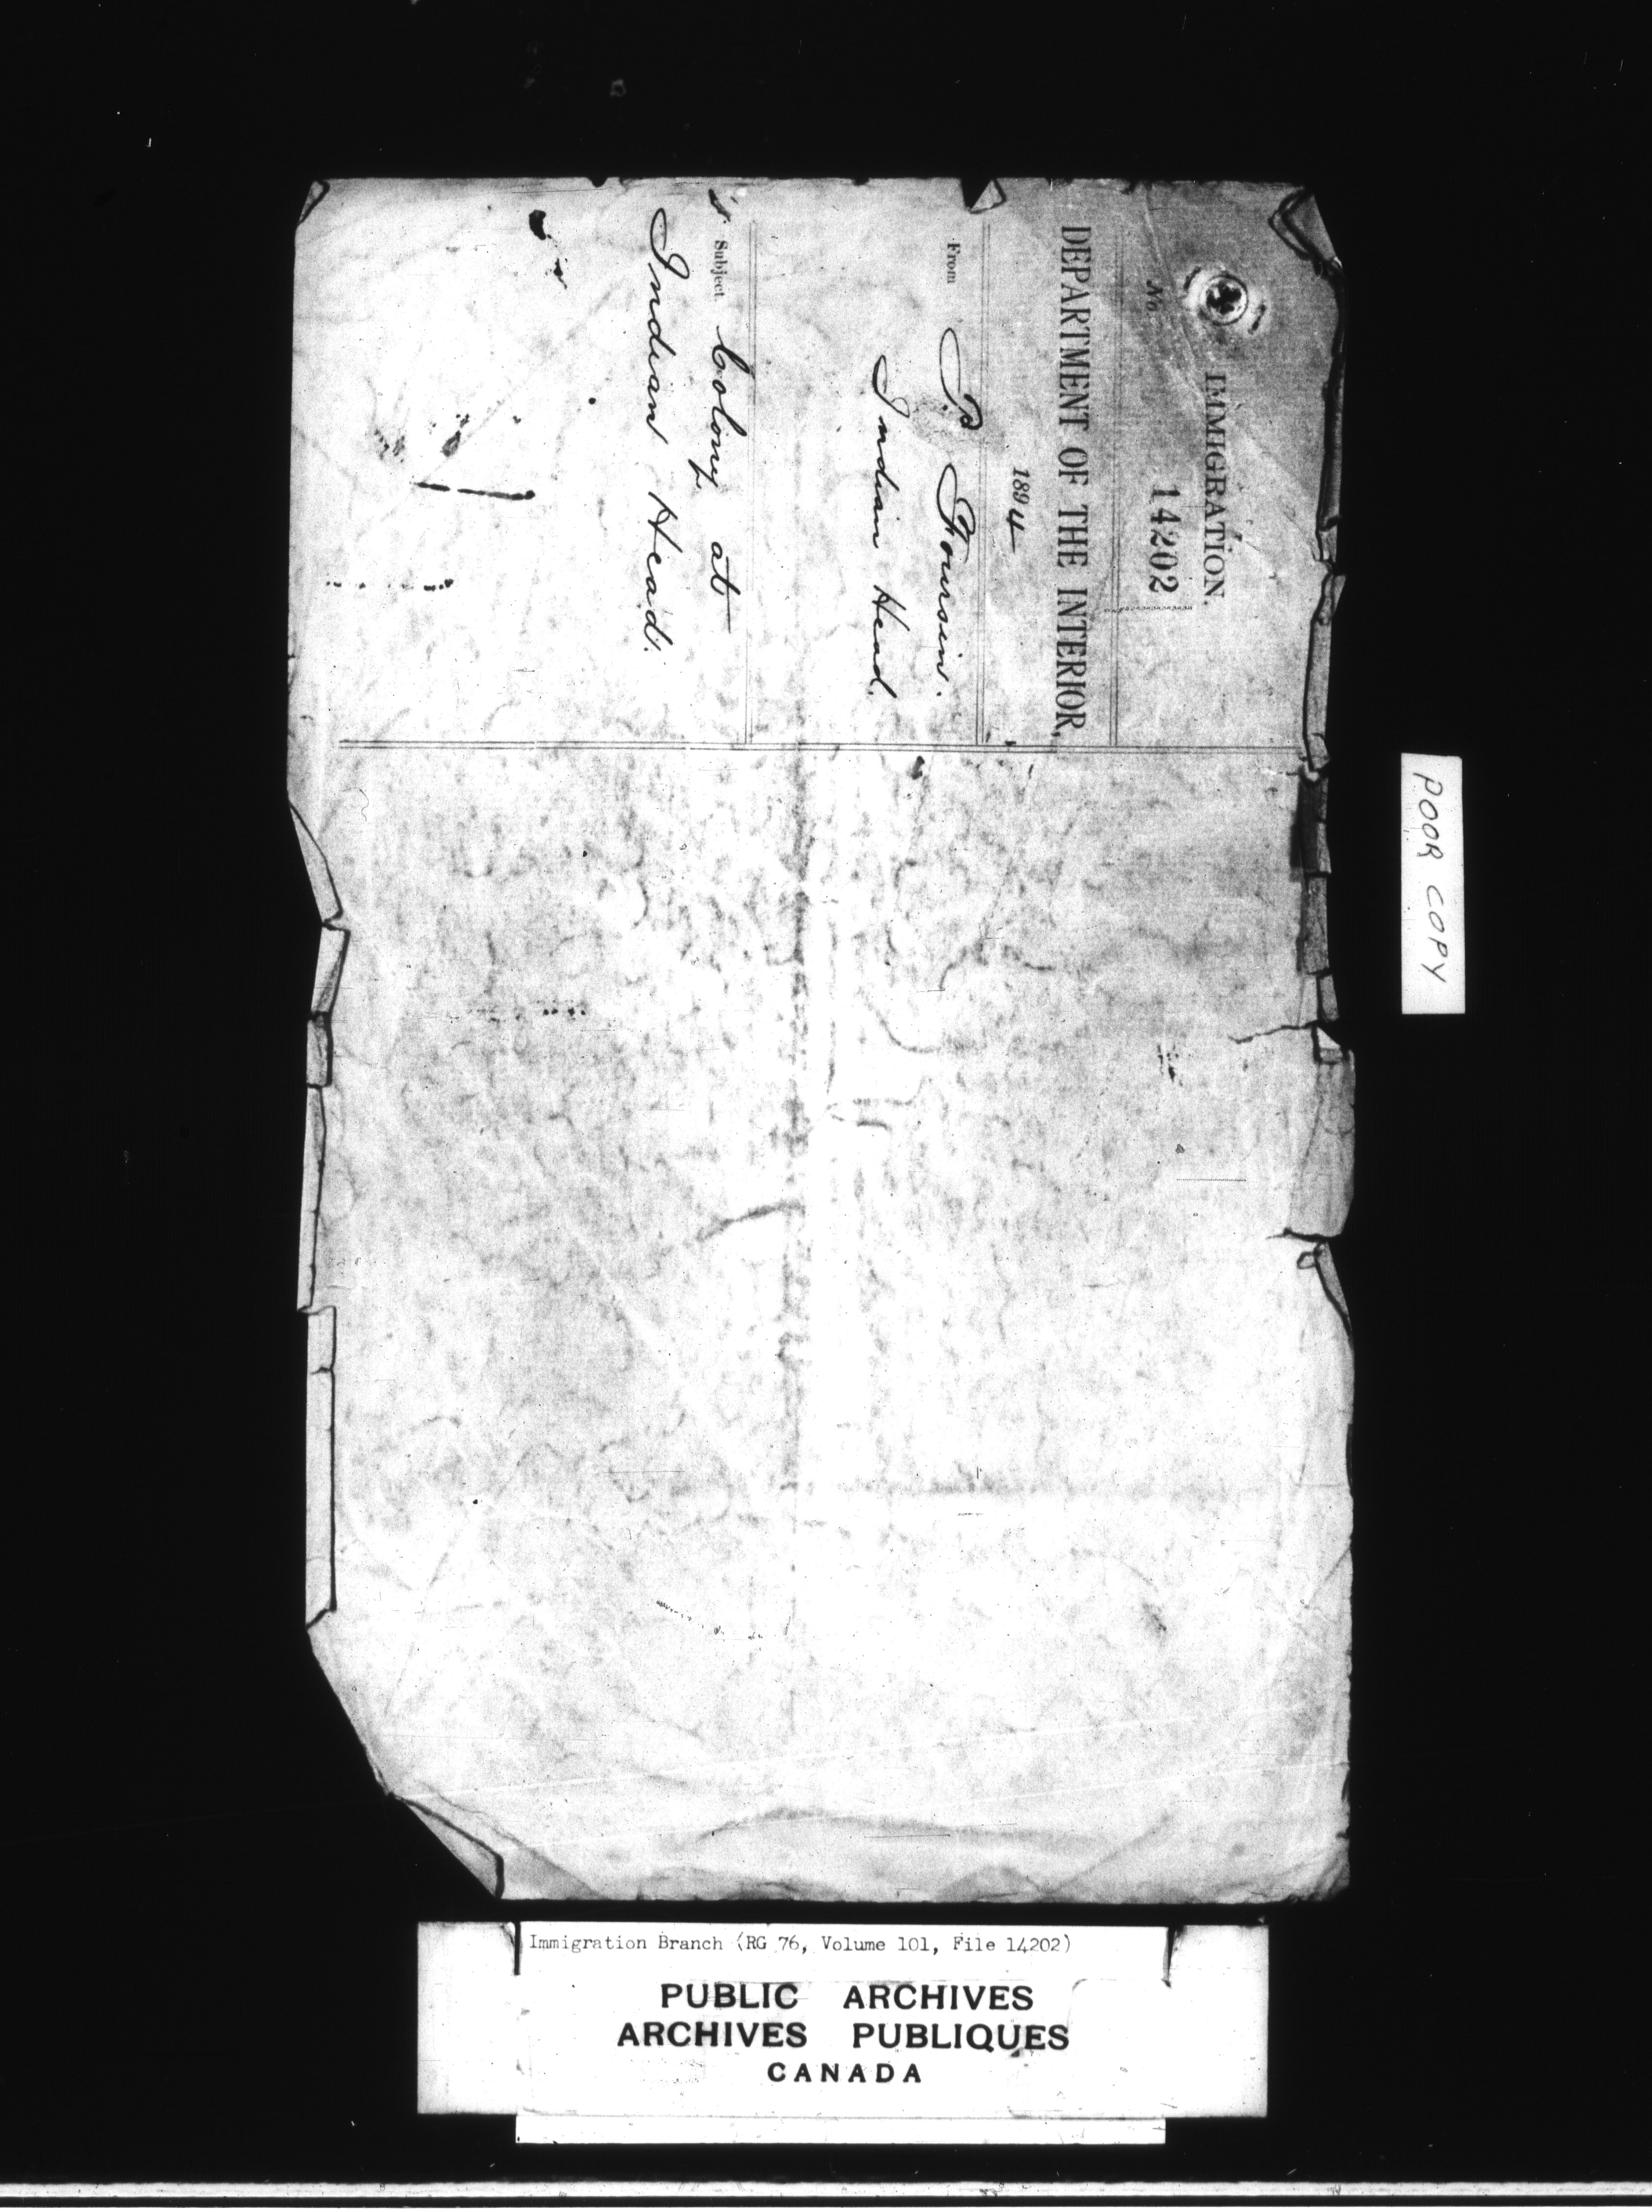 IMMIGRATION.
No. 14202
DEPARTMENT OF THE INTERIOR,
1894
From P. Foursin.
Indian Head.
's Subject, Colony at
Indian Head.
POOR COPY
Immigration Branch (RG 76, Volume 101, File 14202)
PUBLIC ARCHIVES
ARCHIVES PUBLIQUES
CANADA